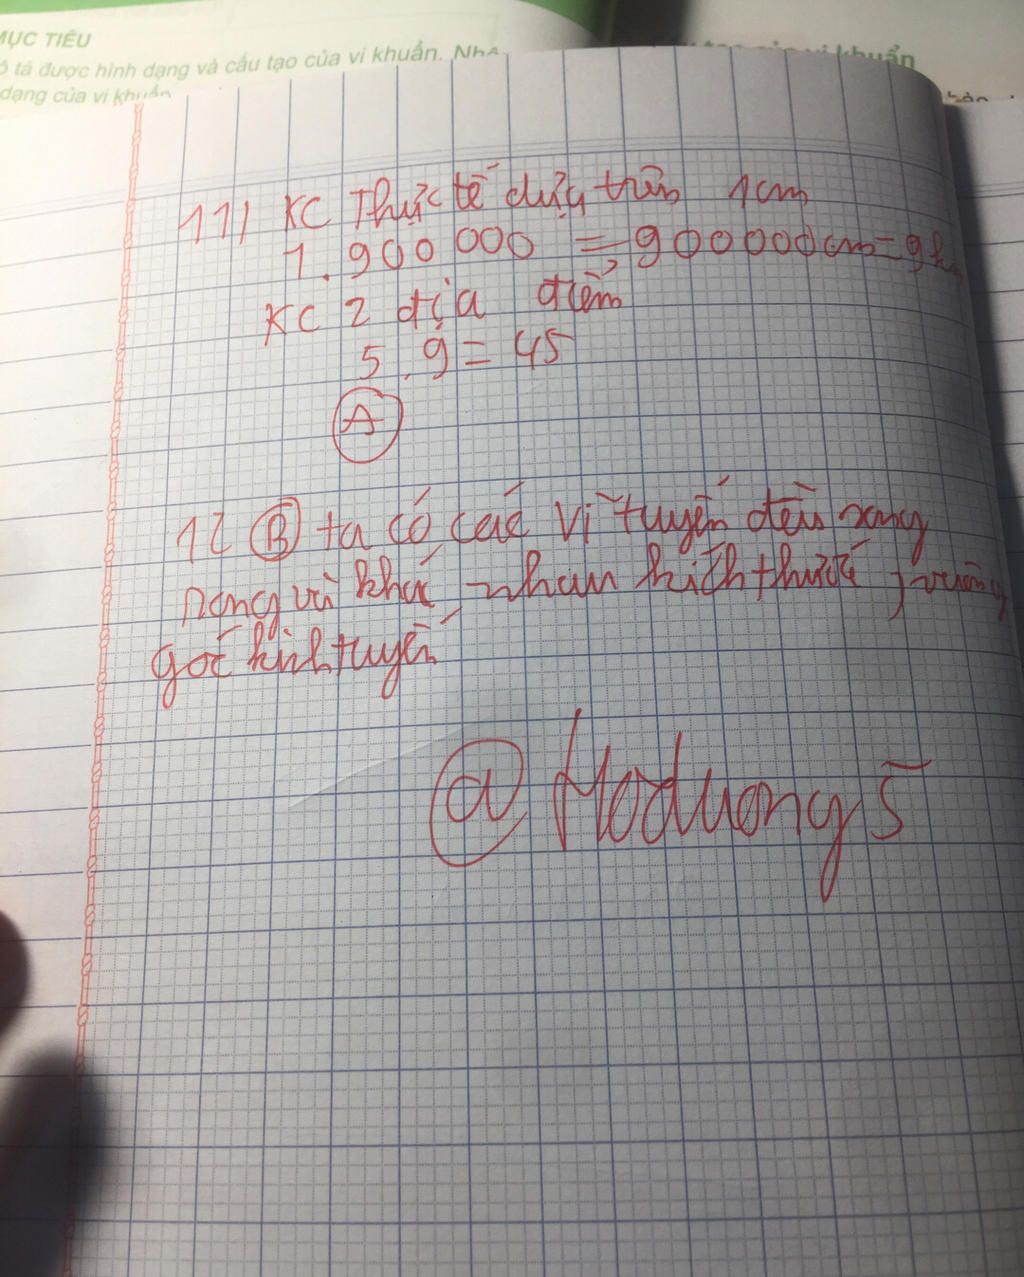 MỤC TIÊU
ô tả được hình dạng và cấu tạo của vi khuẩn. Nhậ
dạng của vi khuẩn
vi khuẩn
11) KC Thực tế dựa trên 1cm
1.900 000 = 900000cm = 9km
KC 2 địa điểm
5.9 = 45
A
12 B ta có các vĩ tuyến đều song
song và khác nhau kích thước, vuông
góc kinh tuyến
@Hoduong5